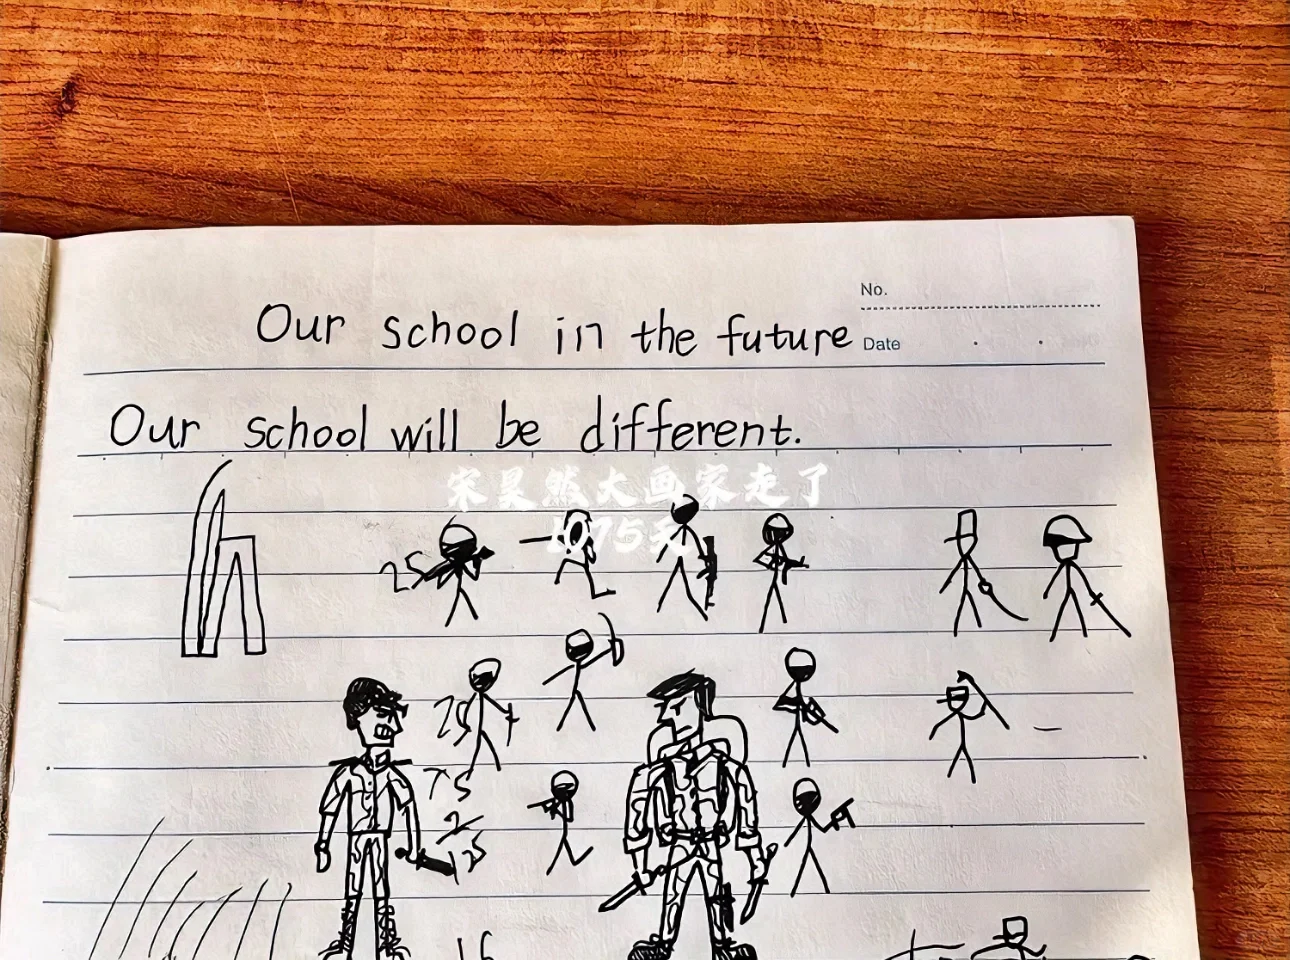 No.
Our school in the future
Date
Our school will be different.
宋昊然大画家走了
1075天
25
25
75
25
125
16